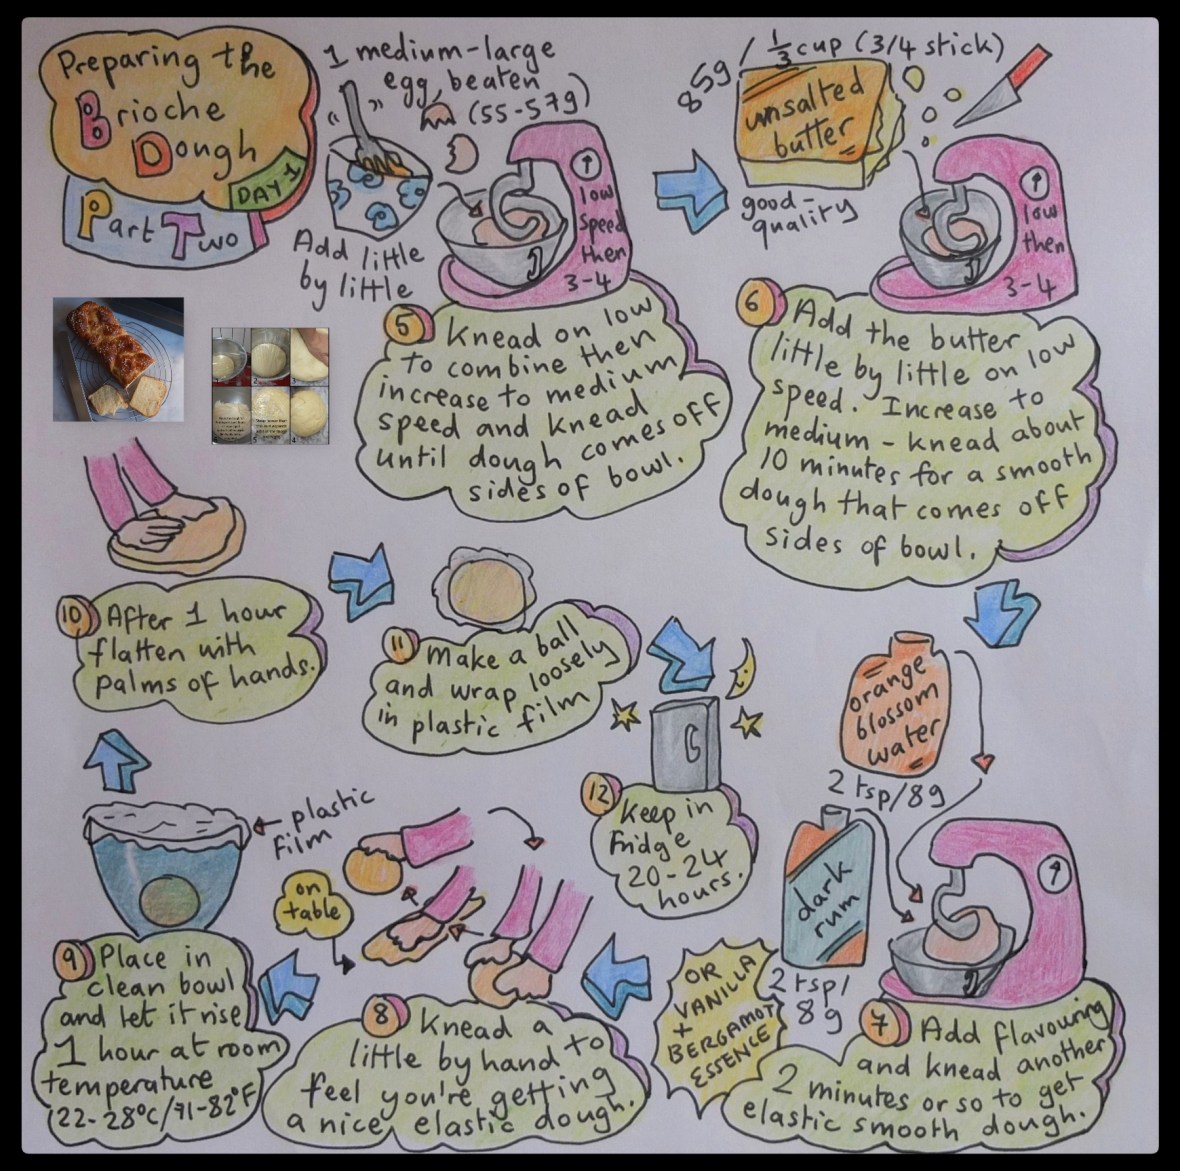 Preparing the
Brioche
Dough
DAY 1
Part Two
1 medium-large
egg, beaten
(55-57g)
Add little
by little
low
speed
then
3-4
5 Knead on low
to combine then
increase to medium
speed and knead
until dough comes off
sides of bowl.
85g / 1/3 cup (3/4 stick)
unsalted
butter
good-
quality
low
then
3-4
6 Add the butter
little by little on low
speed. Increase to
medium - knead about
10 minutes for a smooth
dough that comes off
sides of bowl.
orange
blossom
water
2 tsp/8g
dark
rum
2 tsp/
8g
OR
VANILLA
+
BERGAMOT
ESSENCE
7 Add flavouring
and knead another
2 minutes or so to get
elastic smooth dough.
on
table
8 Knead a
little by hand to
feel you're getting
a nice, elastic dough.
plastic
film
9 Place in
clean bowl
and let it rise
1 hour at room
temperature
(22-28°C/71-82°F)
10 After 1 hour
flatten with
palms of hands.
11 Make a ball
and wrap loosely
in plastic film
12 Keep in
fridge
20-24
hours.